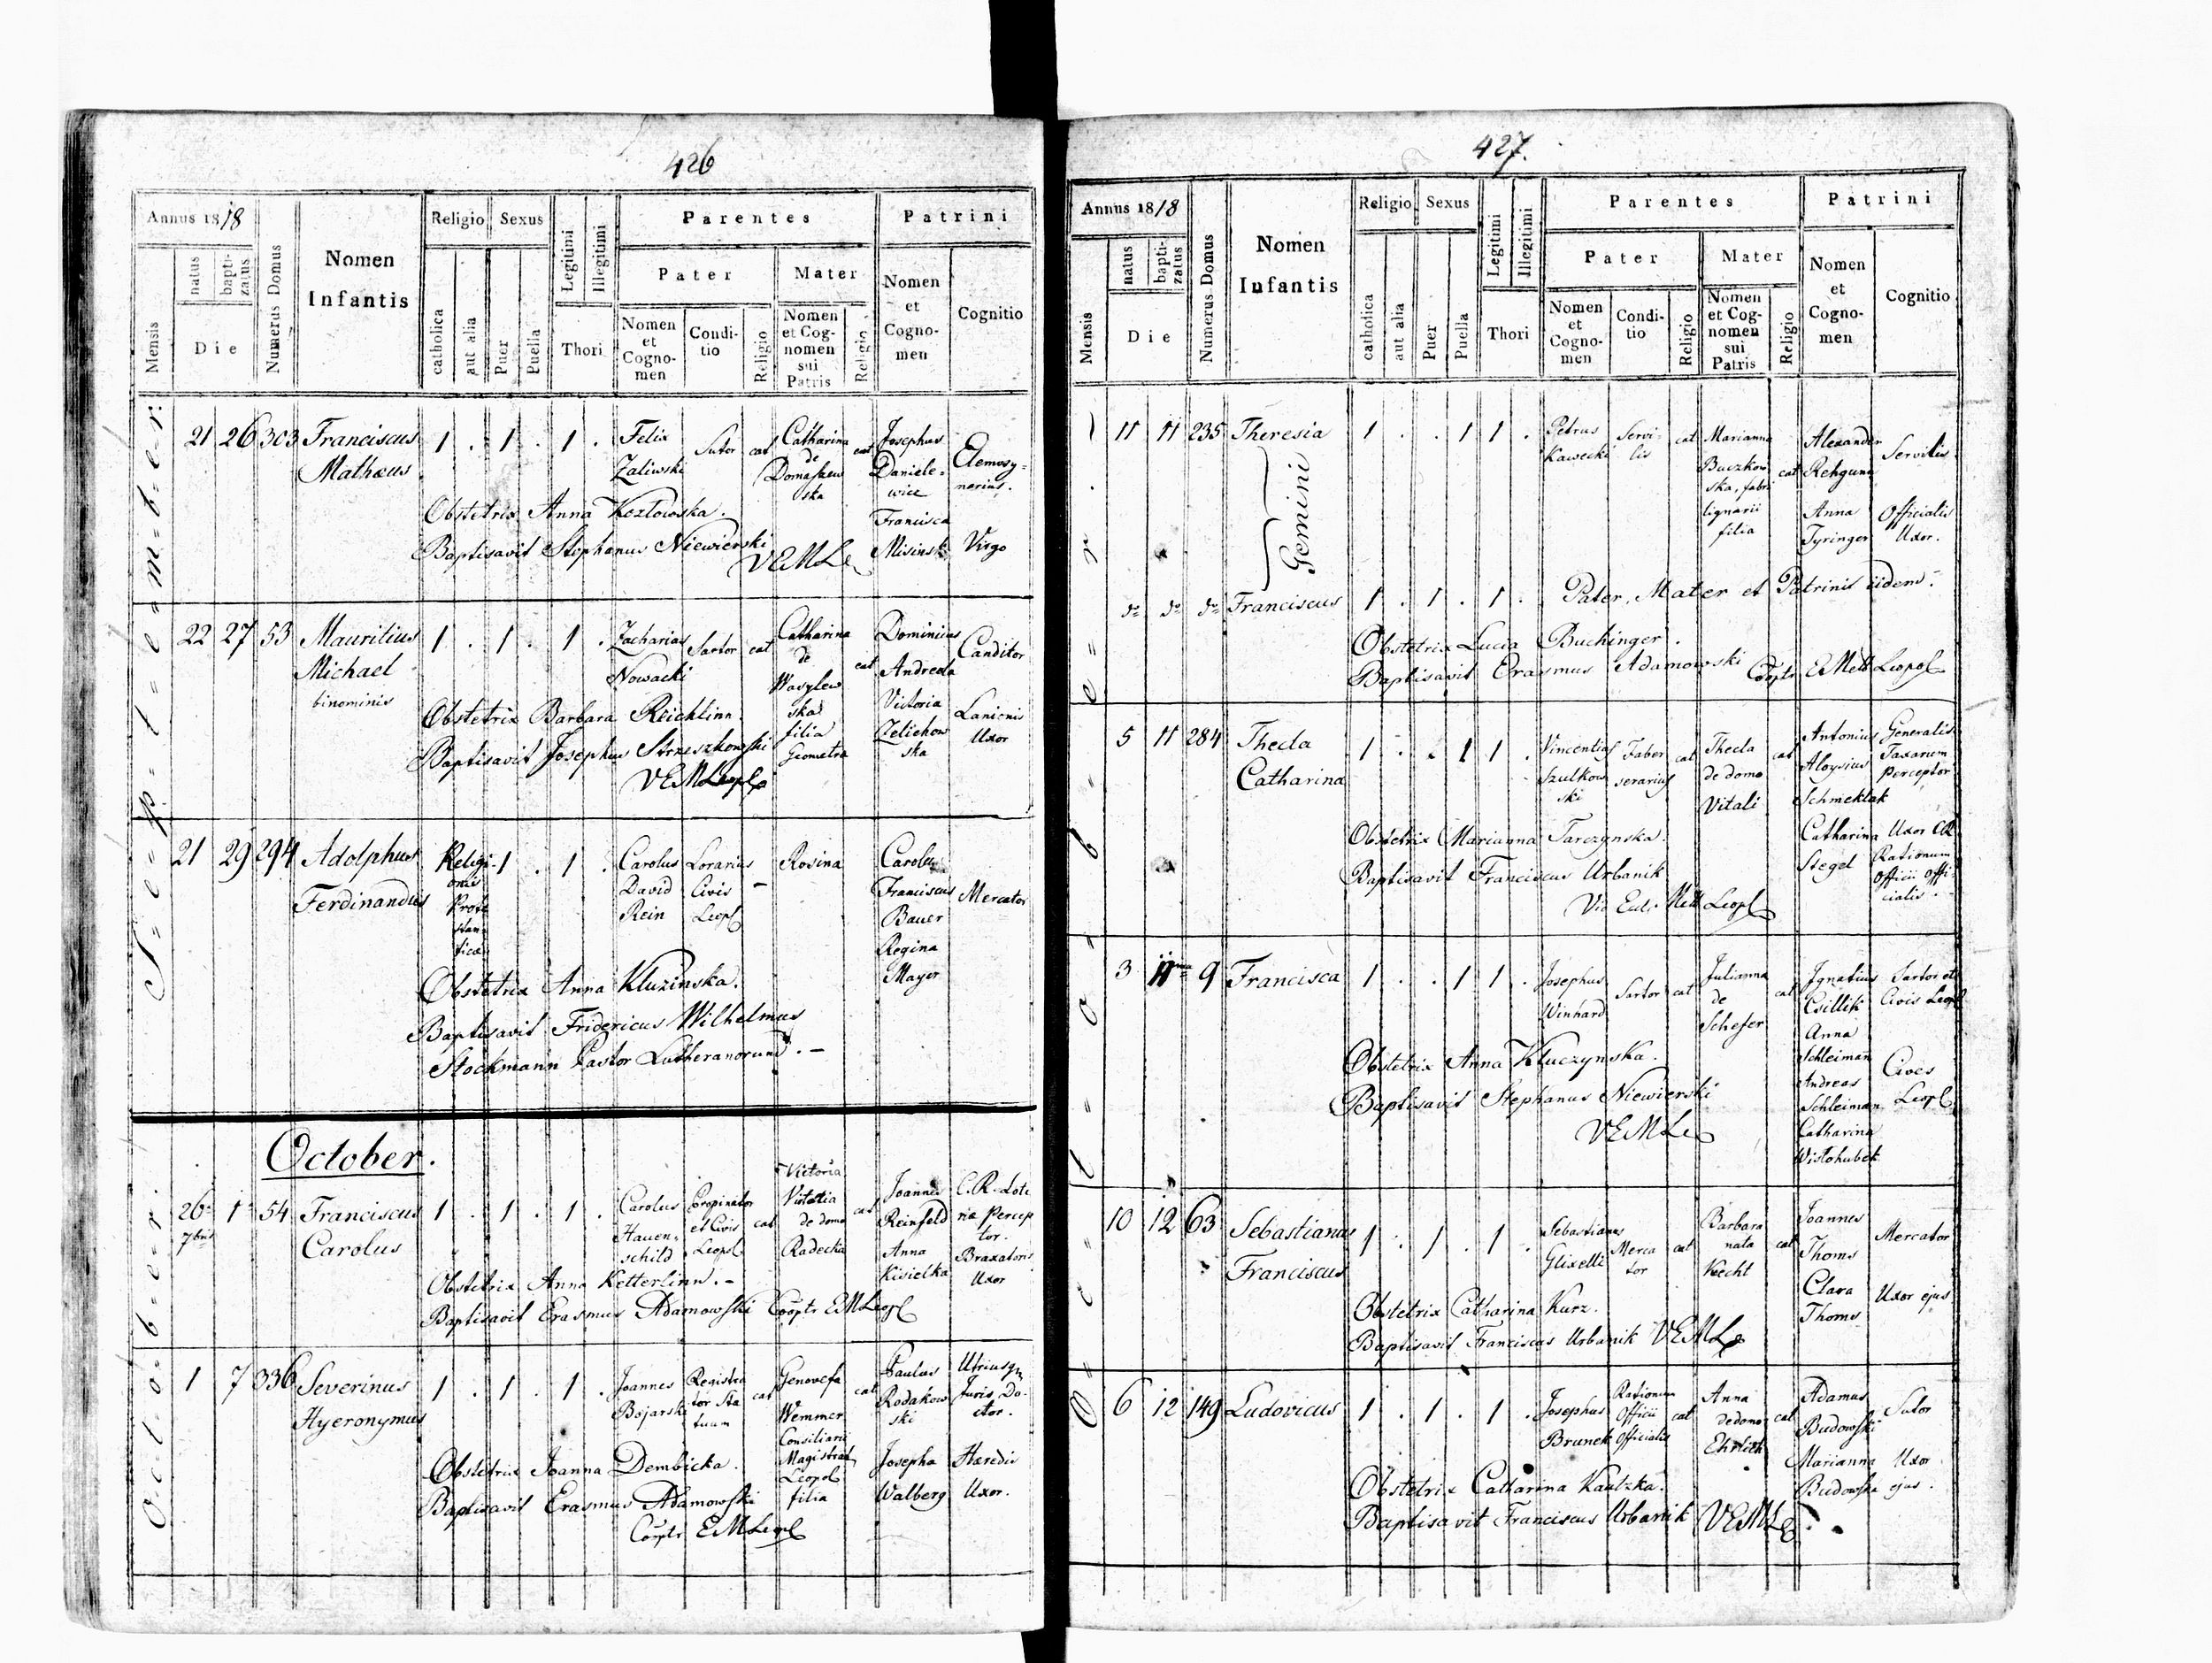 426
Annus 1818
Mensis
natus
bapti-
zatus
Die
Numerus Domus
Nomen
Infantis
Religio
catholica
aut alia
Sexus
Puer
Puella
Legitimi
Illegitimi
Thori
Parentes
Pater
Nomen
et
Cogno-
men
Condi-
tio
Religio
Mater
Nomen
et Cog-
nomen
sui
Patris
Religio
Patrini
Nomen
et
Cogno-
men
Cognitio
S=e=p=t=e=m=b=e=r.
21 26 303 Franciscus 1 . 1 . 1 . Felix Sutor cat Catharina cat Josephus Elemosy=
Mathæus Zaliwski de Daniele= narius.
Domaszew wicz
ska
Obstetrix Anna Kozlowska. Francisca
Baptisavit Stephanus Niewierski Misinsk Virgo
VEMLe
22 27 53 Mauritius 1 . 1 . 1 . Zacharias Sartor cat Catharina cat Dominicus Canditor
Michael Nowacki de Andreola
binominis Wasylew
ska
filia
Geometra
Victoria Lanionis
Zelichow Uxor
ska
Obstetrix Barbara Reichlinn.
Baptisavit Josephus Strzeszkowski
VEMLeopl
21 29 294 Adolphus Religi- 1 . 1 . Carolus Lorarius – Rosina Carolus Mercator
Ferdinandus onis David Civis Franciscus
Prote Rein Leopl Bauer
stan Regina
ticæ Mayer
Obstetrix Anna Kluzinska.
Baptisavit Fridericus Wilhelmus
Stockmann Pastor Lutheranorum. –
October.
O=c=t=o=b=e=r.
26 1 54 Franciscus 1 . 1 . 1 . Carolus Propinator cat Victoria cat Joannes C.R. Lote
7bris Carolus Hauen= et Civis de domo Reinfeld ria Percep
schild Leopol Radecka tor.
Anna Braxatoris
Kisielka Uxor
Obstetrix Anna Ketterlinn. –
Baptisavit Erasmus Adamowski Cooptr EMLeopl
1 7 336 Severinus 1 . 1 . 1 . Joannes Registra cat Genovefa cat Paulus Utriusq
Hyeronymus Bojarski tor Sta Wemmer Rodakow Juris Do-
tuum Consiliarii ski ctor.
Magistrat
Leopol
filia
Josepha Hæredis
Walberg Uxor.
Obstetrix Joanna Dembicka.
Baptisavit Erasmus Adamowski
Cooptr EMLeopl
427.
Annus 1818
Mensis
natus
bapti-
zatus
Die
Numerus Domus
Nomen
Infantis
Religio
catholica
aut alia
Sexus
Puer
Puella
Legitimi
Illegitimi
Thori
Parentes
Pater
Nomen
et
Cogno-
men
Condi-
tio
Religio
Mater
Nomen
et Cog-
nomen
sui
Patris
Religio
Patrini
Nomen
et
Cogno-
men
Cognitio
O=c=t=o=b=e=r.
11 11 235 Theresia 1 . . 1 1 . Petrus Servi- cat Marianna cat Alexander Servilis
Kawecki lis Buczkow
ska, fabri
lignarii
filia
Anna Officialis
Tyringer Uxor.
Gemini
do do do Franciscus 1 . 1 . 1 . Pater, Mater et Patrinis iidem.
Obstetrix Lucia Buchinger.
Baptisavit Erasmus Adamowski Cooptr EMett Leopol
5 11 284 Thecla 1 . . 1 1 . Vincentius Faber cat Thecla cat Antonius Generalis
Catharina Szulkow serarius de domo Aloysius Taxarum
ski Vitali Schmeklak Perceptor
Catharina Uxor CR
Stegel Rationum
Officii Offi
cialis.
Obstetrix Marianna Tarczynska.
Baptisavit Franciscus Urbanik
Vic Eccl: Mett Leopl
3 11 9 Francisca 1 . . 1 1 . Josephus Sartor cat Julianna cat Ignatius Sartor et
Winhard de Csillik Civis Leopl
Schefer Anna
Schleiman Cives
Andreas Leopl
Schleiman
Catharina
Wistohubek
Obstetrix Anna Kluczynska.
Baptisavit Stephanus Niewierski
VEMLe
10 12 63 Sebastianus 1 . 1 . 1 . Sebastianus Merca cat Barbara cat Joannes Mercator
Franciscus Glixelli tor nata Thoms
Kecht Clara Uxor ejus
Thoms
Obstetrix Catharina Kurz.
Baptisavit Franciscus Urbanik VEMLe
6 12 149 Ludovicus 1 . 1 . 1 . Josephus Rationum cat Anna cat Adamus Sutor
Brunek Officii de domo Budowski
Officialis Ehrlich Marianna Uxor
Budowska ejus.
Obstetrix Catharina Kautzka.
Baptisavit Franciscus Urbanik VEMLe